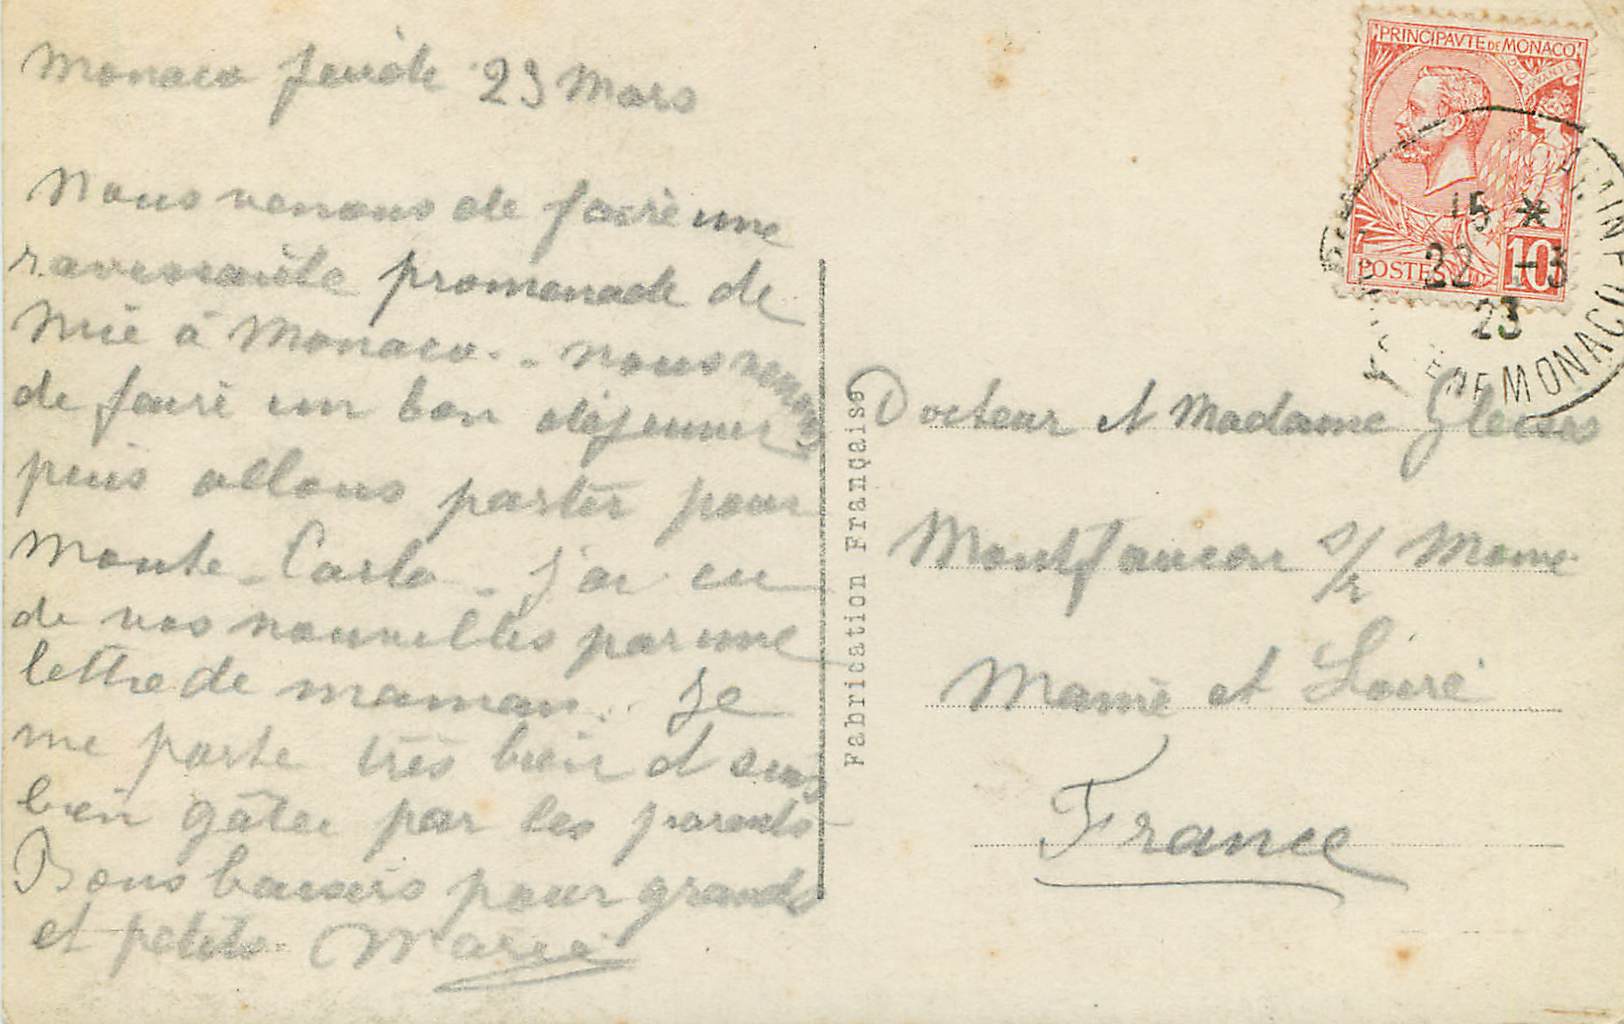 Monaco jeudi 23 Mars
Nous venons de faire une
ravissante promenade de
Nice à Monaco. - nous venons
de faire un bon déjeuner
puis allons partir pour
Monte-Carlo - j'ai eu
de vos nouvelles par une
lettre de maman. Je
me porte très bien et suis
bien gâtée par les parents
Bons baisers pour grands
et petits. Marie
Fabrication Française
PRINCIPAVTE DE MONACO
POSTES
10
15 *
22 - 3
23
MONACO
Docteur et Madame
Montfaucon s/ Moine
Maine et Loire
France